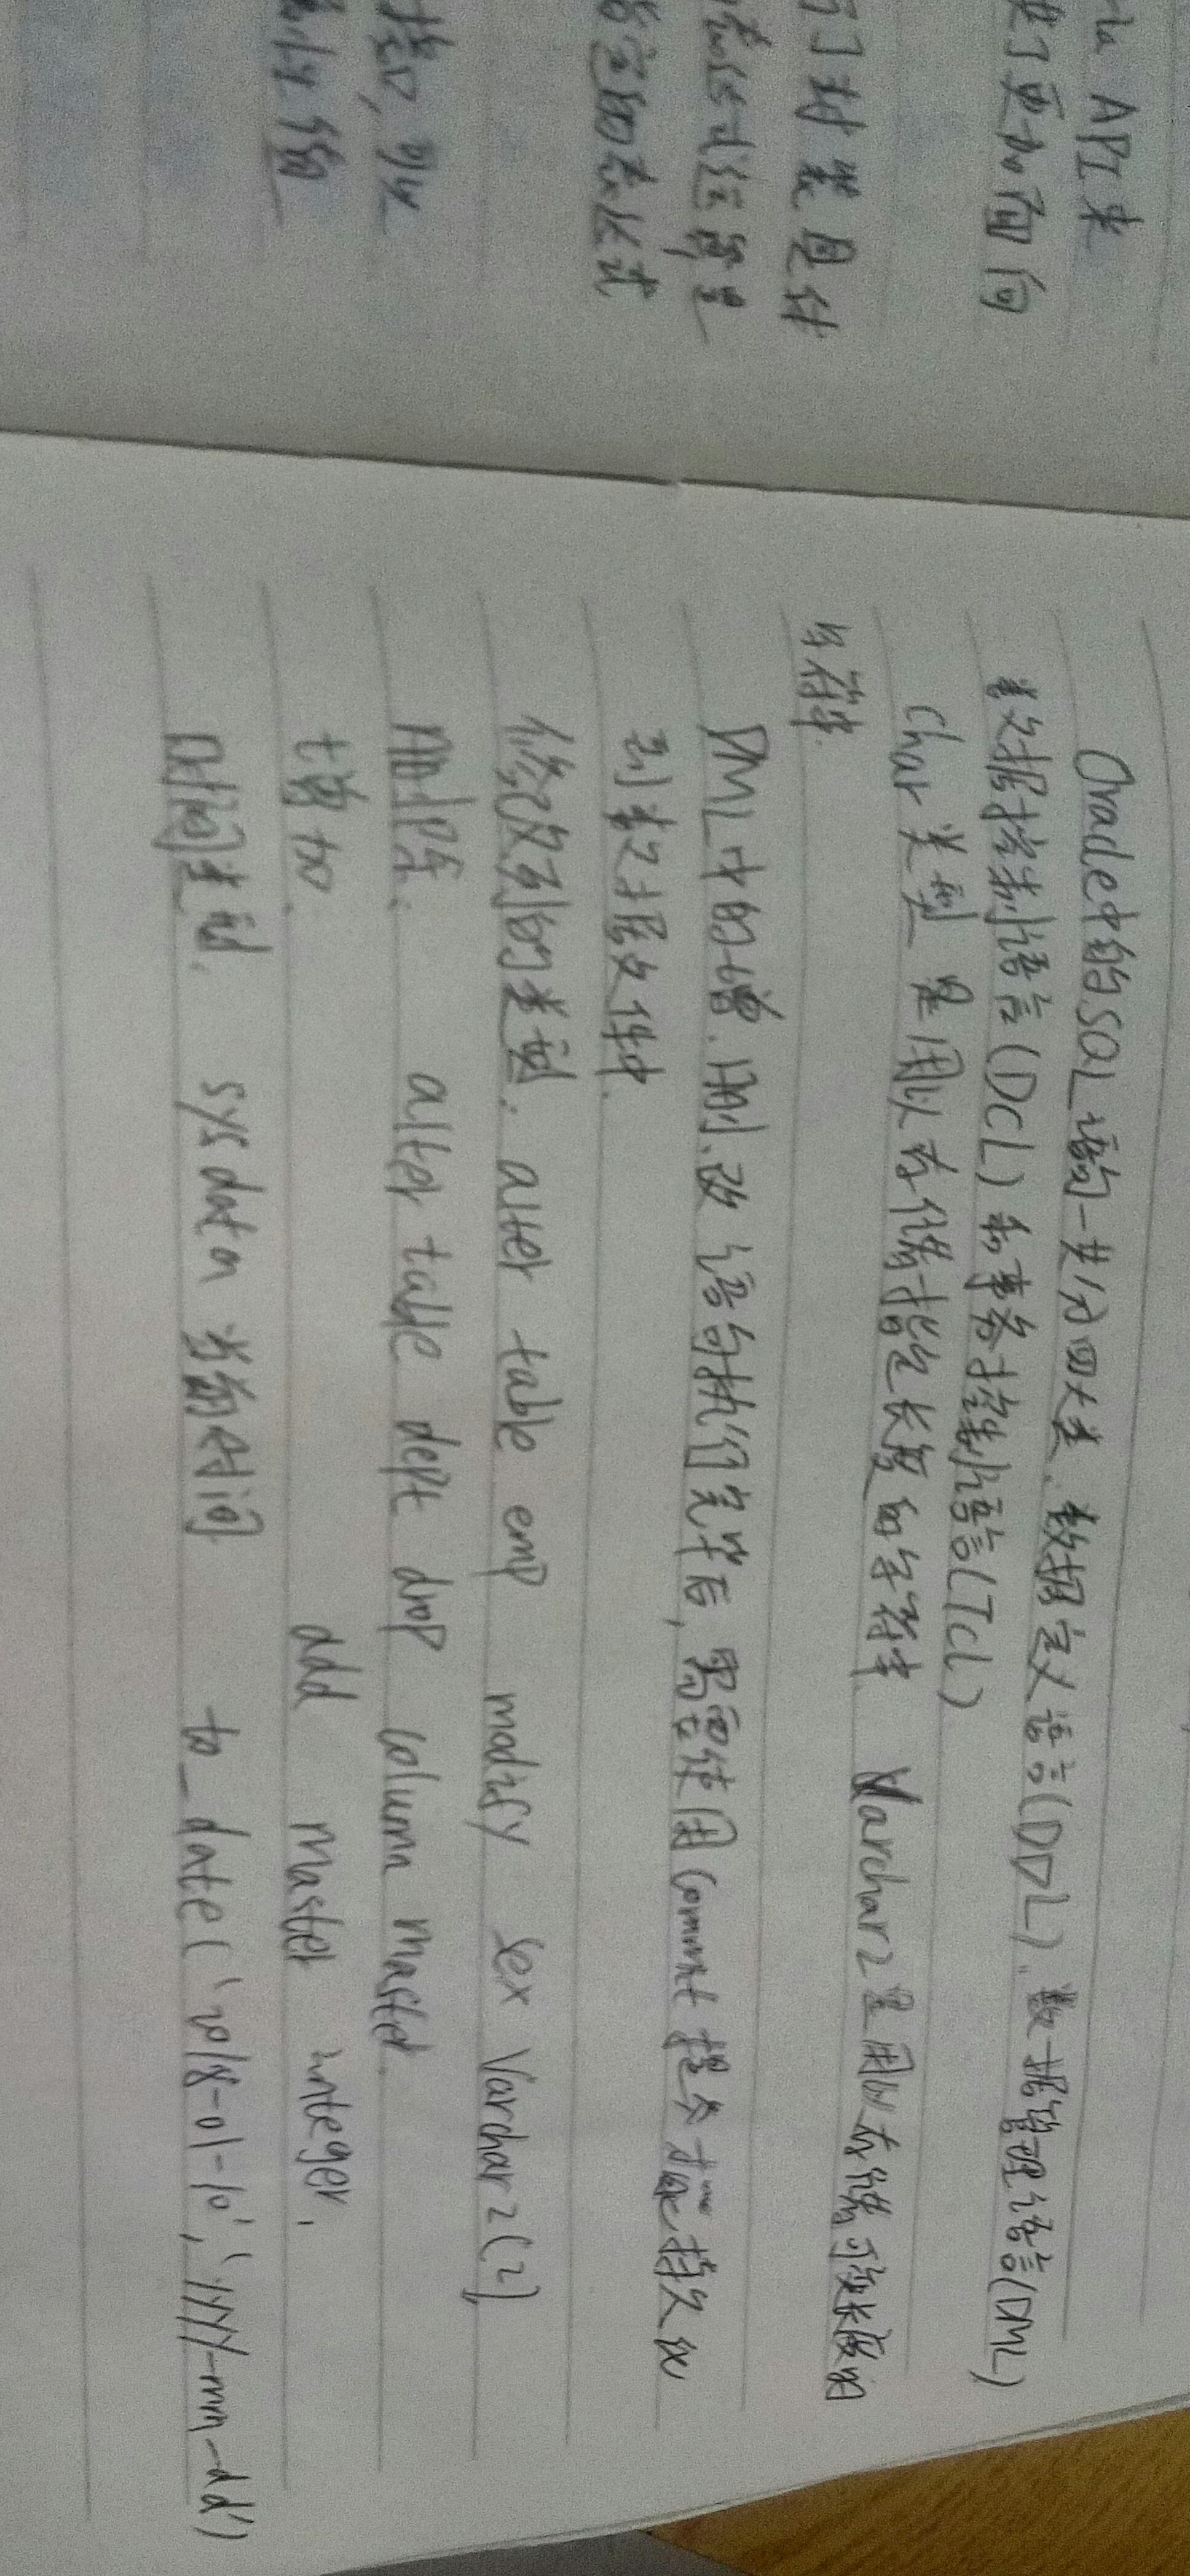 la API来
供了更加面向
行封装具体
表达式运算里
指定的表达式
接口,可以
属性值
Oracle中的SQL语句一共分四大类、数据定义语言(DDL)、数据管理语言(DML)
数据控制语言(DCL)和事务控制语言(TCL)
char 类型 是用以存储指定长度的字符串. Varchar2是用以存储可变长度的
字符串.
DML中的增、删、改 语句执行完毕后,需要使用commit 提交才能持久化
到数据文件中.
修改列的类型: alter table emp modify sex Varchar2(2),
删除: alter table dept drop column master.
增加. add master integer,
时间类型. sysdata 当前时间 to_date('2018-01-10','yyyy-mm-dd')